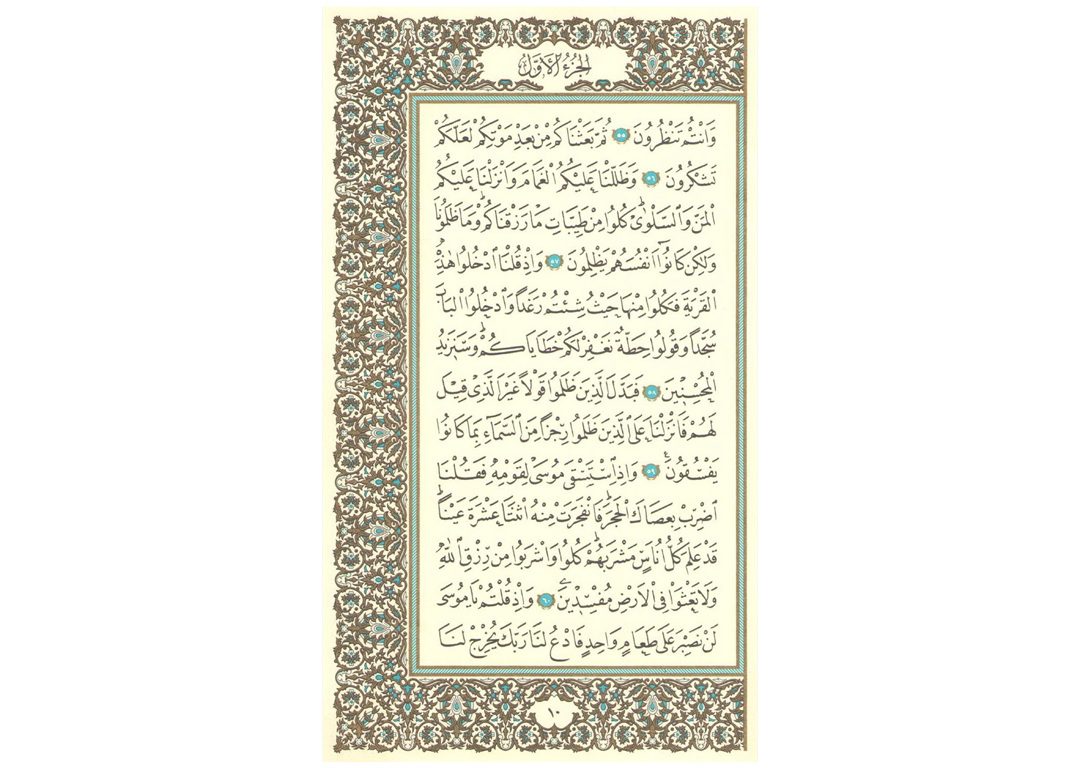 الجزء الاول
وَاَنْتُمْ تَنْظُرُونَ ٥٥ ثُمَّ بَعَثْنَاكُمْ مِنْ بَعْدِ مَوْتِكُمْ لَعَلَّكُمْ
تَشْكُرُونَ ٥٦ وَظَلَّلْنَا عَلَيْكُمُ الْغَمَامَ وَاَنْزَلْنَا عَلَيْكُمُ
الْمَنَّ وَالسَّلْوٰىۜ كُلُوا مِنْ طَيِّبَاتِ مَا رَزَقْنَاكُمْۜ وَمَا ظَلَمُونَا
وَلٰكِنْ كَانُٓوا اَنْفُسَهُمْ يَظْلِمُونَ ٥٧ وَاِذْ قُلْنَا ادْخُلُوا هٰذِهِ
الْقَرْيَةَ فَكُلُوا مِنْهَا حَيْثُ شِئْتُمْ رَغَدًا وَادْخُلُوا الْبَابَ
سُجَّدًا وَقُولُوا حِطَّةٌ نَغْفِرْ لَكُمْ خَطَايَاكُمْۜ وَسَنَزِيدُ
الْمُحْسِنِينَ ٥٨ فَبَدَّلَ الَّذِينَ ظَلَمُوا قَوْلًا غَيْرَ الَّذِي قِيلَ
لَهُمْ فَاَنْزَلْنَا عَلَى الَّذِينَ ظَلَمُوا رِجْزًا مِنَ السَّمَٓاءِ بِمَا كَانُوا
يَفْسُقُونَ۟ ٥٩ وَاِذِ اسْتَسْقٰى مُوسٰى لِقَوْمِهِ فَقُلْنَا
اضْرِبْ بِعَصَاكَ الْحَجَرَۜ فَانْفَجَرَتْ مِنْهُ اثْنَتَا عَشْرَةَ عَيْنًاۜ
قَدْ عَلِمَ كُلُّ اُنَاسٍ مَشْرَبَهُمْۜ كُلُوا وَاشْرَبُوا مِنْ رِزْقِ اللّٰهِ
وَلَا تَعْثَوْا فِي الْاَرْضِ مُفْسِدِينَ ٦٠ وَاِذْ قُلْتُمْ يَا مُوسٰى
لَنْ نَصْبِرَ عَلٰى طَعَامٍ وَاحِدٍ فَادْعُ لَنَا رَبَّكَ يُخْرِجْ لَنَا
١٠